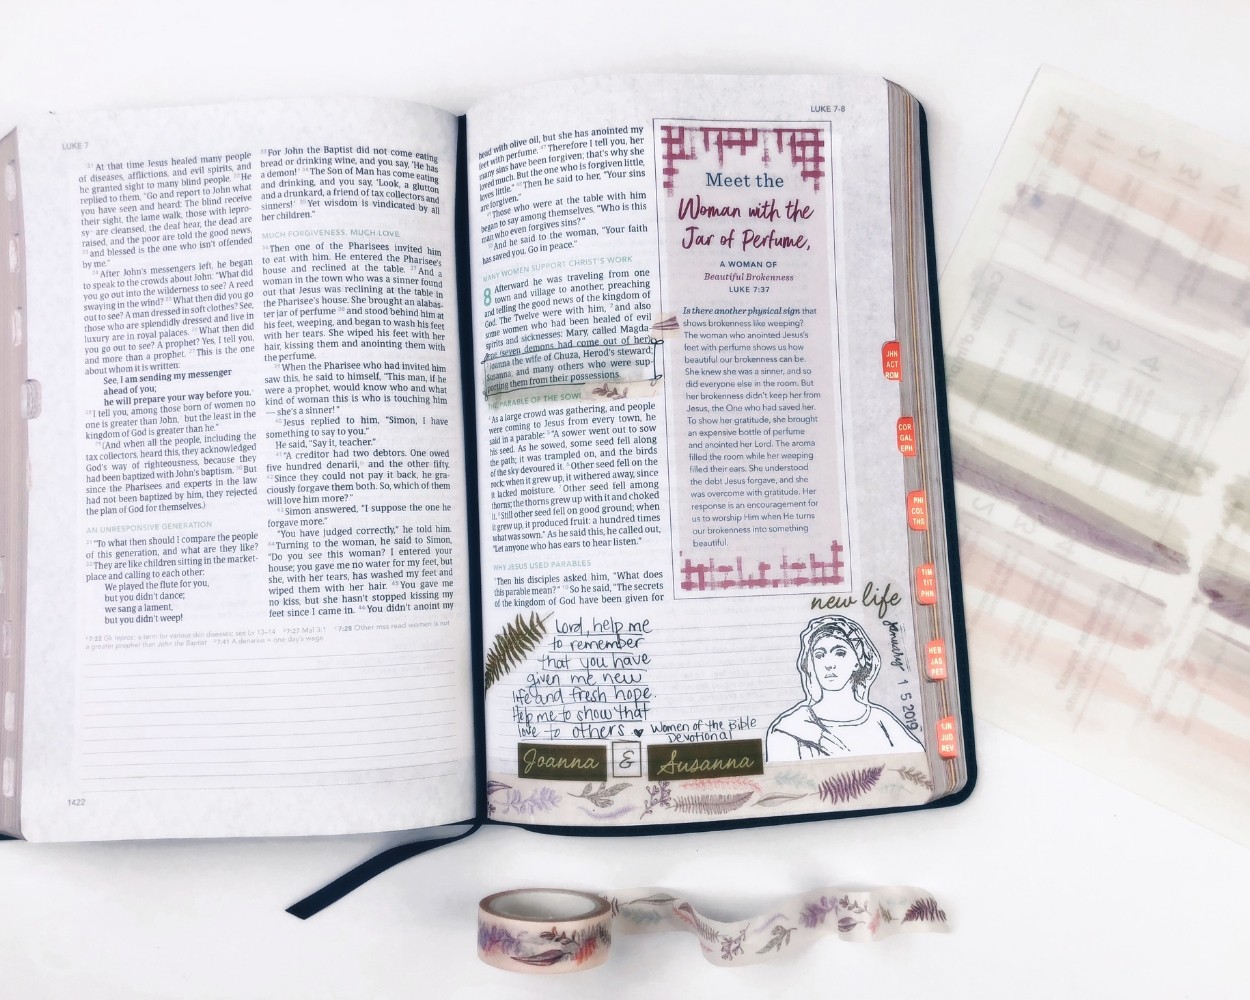 LUKE 7
21 At that time Jesus healed many people
of diseases, afflictions, and evil spirits, and
he granted sight to many blind people. 22 He
replied to them, “Go and report to John what
you have seen and heard: The blind receive
their sight, the lame walk, those with lepro-
sy are cleansed, the deaf hear, the dead are
raised, and the poor are told the good news,
23 and blessed is the one who isn’t offended
by me.”
24 After John’s messengers left, he began
to speak to the crowds about John: “What did
you go out into the wilderness to see? A reed
swaying in the wind? 25 What then did you go
out to see? A man dressed in soft clothes? See,
those who are splendidly dressed and live in
luxury are in royal palaces. 26 What then did
you go out to see? A prophet? Yes, I tell you,
and more than a prophet. 27 This is the one
about whom it is written:
See, I am sending my messenger
ahead of you;
he will prepare your way before you.
28 I tell you, among those born of women no
one is greater than John, but the least in the
kingdom of God is greater than he.”
29 (And when all the people, including the
tax collectors, heard this, they acknowledged
God’s way of righteousness, because they
had been baptized with John’s baptism. 30 But
since the Pharisees and experts in the law
had not been baptized by him, they rejected
the plan of God for themselves.)
AN UNRESPONSIVE GENERATION
31 “To what then should I compare the people
of this generation, and what are they like?
32 They are like children sitting in the market-
place and calling to each other:
We played the flute for you,
but you didn’t dance;
we sang a lament,
but you didn’t weep!
33 For John the Baptist did not come eating
bread or drinking wine, and you say, ‘He has
a demon!’ 34 The Son of Man has come eating
and drinking, and you say, ‘Look, a glutton
and a drunkard, a friend of tax collectors and
sinners!’ 35 Yet wisdom is vindicated by all
her children.”
MUCH FORGIVENESS, MUCH LOVE
36 Then one of the Pharisees invited him
to eat with him. He entered the Pharisee’s
house and reclined at the table. 37 And a
woman in the town who was a sinner found
out that Jesus was reclining at the table in
the Pharisee’s house. She brought an alabas-
ter jar of perfume 38 and stood behind him at
his feet, weeping, and began to wash his feet
with her tears. She wiped his feet with her
hair, kissing them and anointing them with
the perfume.
39 When the Pharisee who had invited him
saw this, he said to himself, “This man, if he
were a prophet, would know who and what
kind of woman this is who is touching him
— she’s a sinner!”
40 Jesus replied to him, “Simon, I have
something to say to you.”
He said, “Say it, teacher.”
41 “A creditor had two debtors. One owed
five hundred denarii, and the other fifty.
42 Since they could not pay it back, he gra-
ciously forgave them both. So, which of them
will love him more?”
43 Simon answered, “I suppose the one he
forgave more.”
“You have judged correctly,” he told him.
44 Turning to the woman, he said to Simon,
“Do you see this woman? I entered your
house; you gave me no water for my feet, but
she, with her tears, has washed my feet and
wiped them with her hair. 45 You gave me
no kiss, but she hasn’t stopped kissing my
feet since I came in. 46 You didn’t anoint my
7:22 Gk lepros; a term for various skin diseases; see Lv 13–14 7:27 Mal 3:1 7:28 Other mss read women is not
a greater prophet than John the Baptist 7:41 A denarius = one day’s wage
1422
LUKE 7-8
head with olive oil, but she has anointed my
feet with perfume. 47 Therefore I tell you, her
many sins have been forgiven; that’s why she
loved much. But the one who is forgiven little,
loves little.” 48 Then he said to her, “Your sins
are forgiven.”
49 Those who were at the table with him
began to say among themselves, “Who is this
man who even forgives sins?”
50 And he said to the woman, “Your faith
has saved you. Go in peace.”
MANY WOMEN SUPPORT CHRIST’S WORK
8 Afterward he was traveling from one
town and village to another, preaching
and telling the good news of the kingdom of
God. The Twelve were with him, 2 and also
some women who had been healed of evil
spirits and sicknesses: Mary, called Magda-
lene (seven demons had come out of her);
3 Joanna the wife of Chuza, Herod’s steward;
Susanna; and many others who were sup-
porting them from their possessions.
THE PARABLE OF THE SOWE
4 As a large crowd was gathering, and people
were coming to Jesus from every town, he
said in a parable: 5 “A sower went out to sow
his seed. As he sowed, some seed fell along
the path; it was trampled on, and the birds
of the sky devoured it. 6 Other seed fell on the
rock; when it grew up, it withered away, since
it lacked moisture. 7 Other seed fell among
thorns; the thorns grew up with it and choked
it. 8 Still other seed fell on good ground; when
it grew up, it produced fruit: a hundred times
what was sown.” As he said this, he called out,
“Let anyone who has ears to hear listen.”
WHY JESUS USED PARABLES
9 Then his disciples asked him, “What does
this parable mean?” 10 So he said, “The secrets
of the kingdom of God have been given for
Meet the
Woman with the
Jar of Perfume,
A WOMAN OF
Beautiful Brokenness
LUKE 7:37
Is there another physical sign that
shows brokenness like weeping?
The woman who anointed Jesus’s
feet with perfume shows us how
beautiful our brokenness can be.
She knew she was a sinner, and so
did everyone else in the room. But
her brokenness didn’t keep her from
Jesus, the One who had saved her.
To show her gratitude, she brought
an expensive bottle of perfume
and anointed her Lord. The aroma
filled the room while her weeping
filled their ears. She understood
the debt Jesus forgave, and she
was overcome with gratitude. Her
response is an encouragement for
us to worship Him when He turns
our brokenness into something
beautiful.
new life
January 15 2019
Lord, help me
to remember
that you have
given me new
life and fresh hope.
Help me to show that
love to others ♥
Women of the Bible
Devotional
Joanna & Susanna
JHN
ACT
ROM
COR
GAL
EPH
PHI
COL
THS
TIM
TIT
PHN
HEB
JAS
PET
1JN
JUD
REV